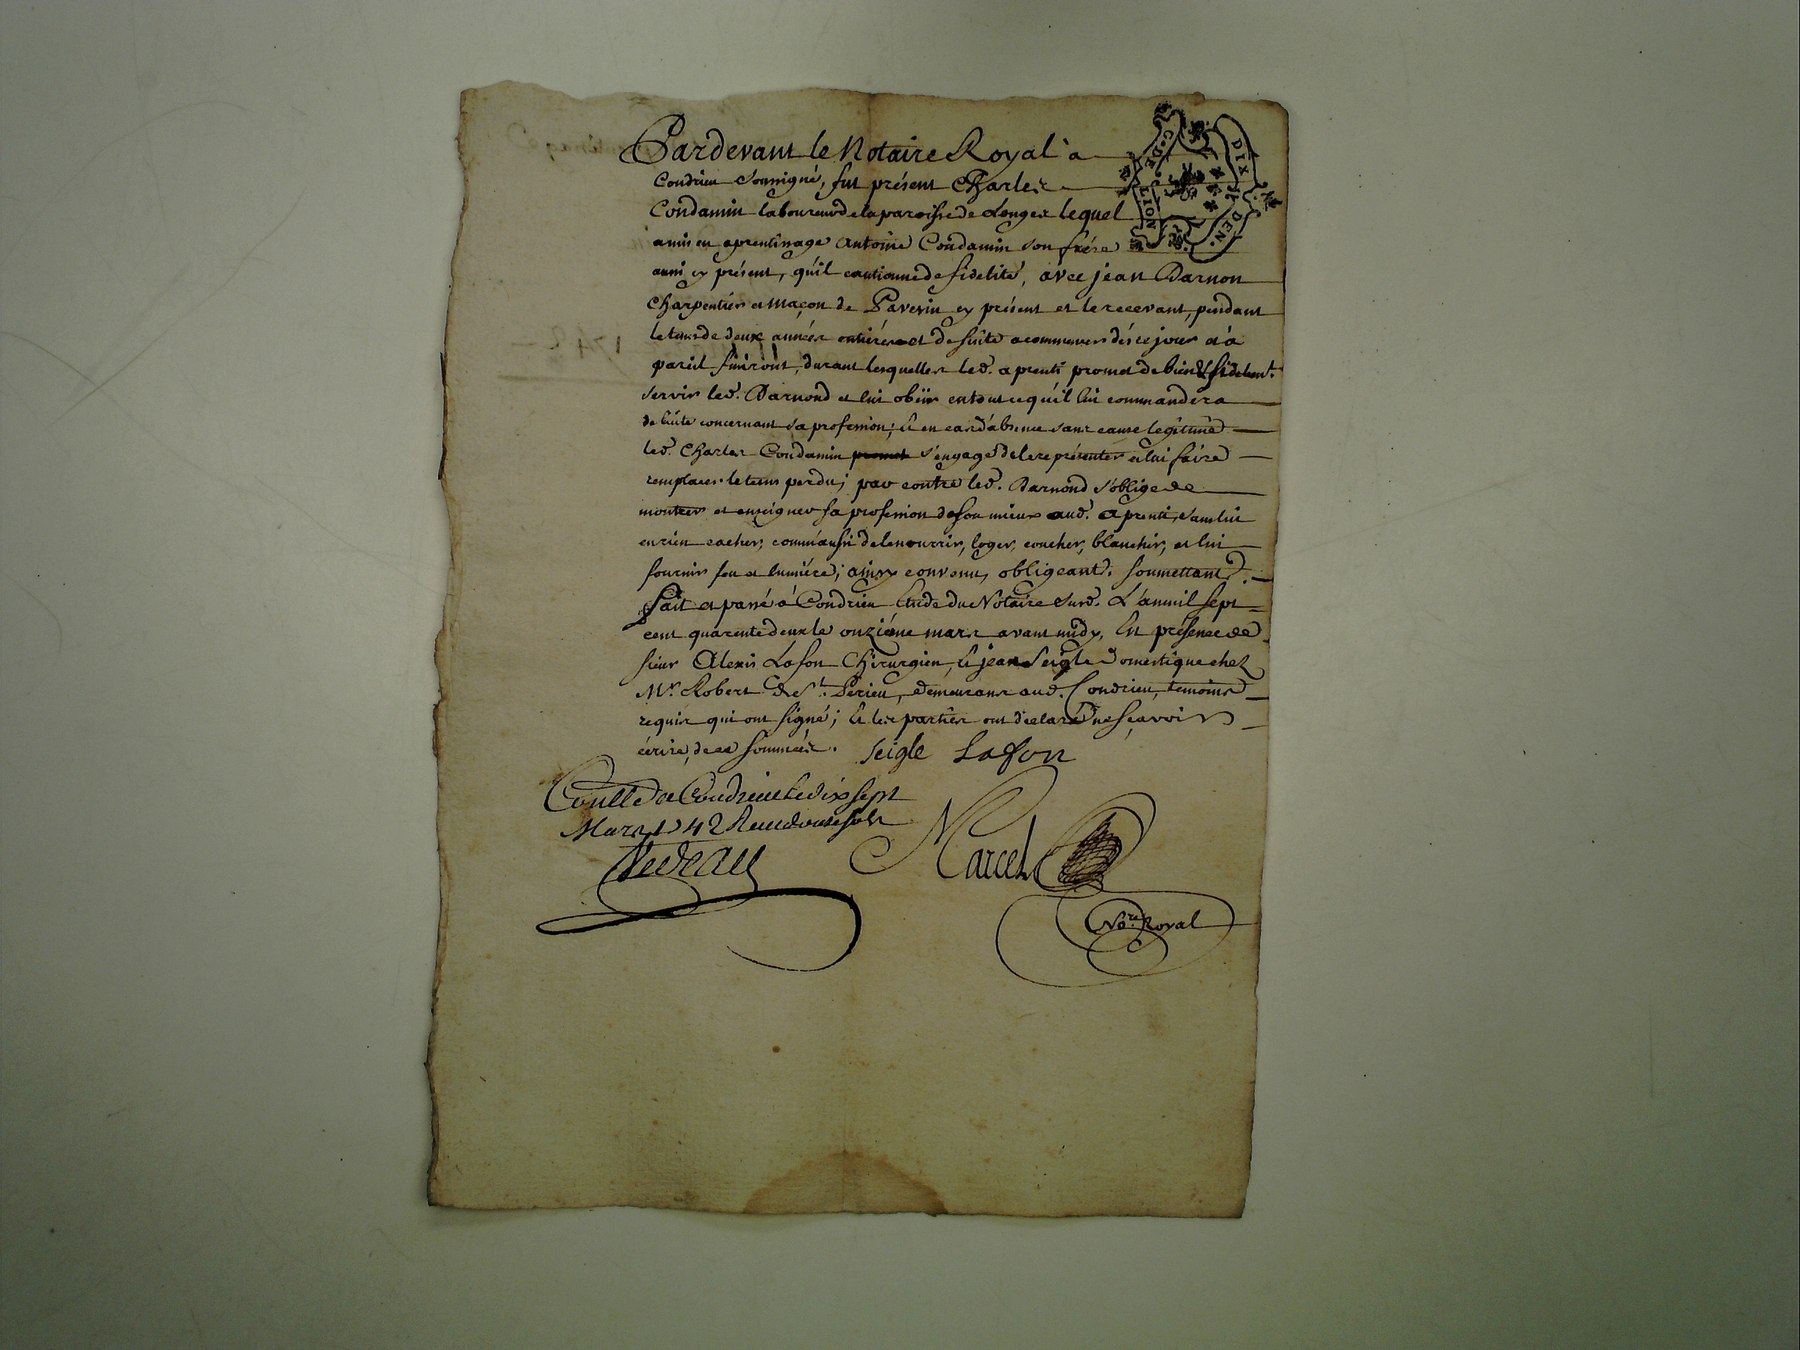 Pardevant le Notaire Royal à
Condrieu Soussigné, fut présent Charles
Condamin laboureur de la paroisse de Longes lequel
a mis en aprentissage Antoine Condamin son frére
aussi cy présent, qu'il cautionne de fidelité, avec jean Darnon
Charpentier et maçon de Pavesin cy présent et le recevant, pendant
le tems de deux années entiéres et de suite a commencer dés ce jour et à
pareil finiront, durant lesquelles led. aprenti promet de bien & fidelem.t
servir led. Darnond et lui obéir en tout ce qu'il lui commandera
de licite concernant sa profession; & en cas d'absence sans cause legitime
led. Charles Condamin promet s'engage de le représenter et lui faire
remplacer le tems perdu; par contre led. Darnond s'oblige de
montrer et enseigner sa profession de son mieux aud. aprenti, sans lui
en rien cacher, comm'aussi de le nourrir, loger, coucher, blanchir, et lui
fournir feu et lumiére; ainsy convenu, obligeant. soumettant.
Fait et passé à Condrieu Etude du Notaire susd. L'an mil sept
cent quarente deux le onziéme mars avant midy, En présence de
sieur Alexis Lafon Chirurgien, & jean Seigle Domestique chez
Mr. Robert de St. Perieu, demeurans aud. Condrieu, temoins
requis qui ont signé; & les parties ont declaré ne sçavoir
écrire, de ce sommées. Seigle Lafon
Conllé a Condrieu Le dix sept
Mars 1742 Receu douze sols
Marcel
No.re Royal
C. DE LION
DIX DEN.
1742